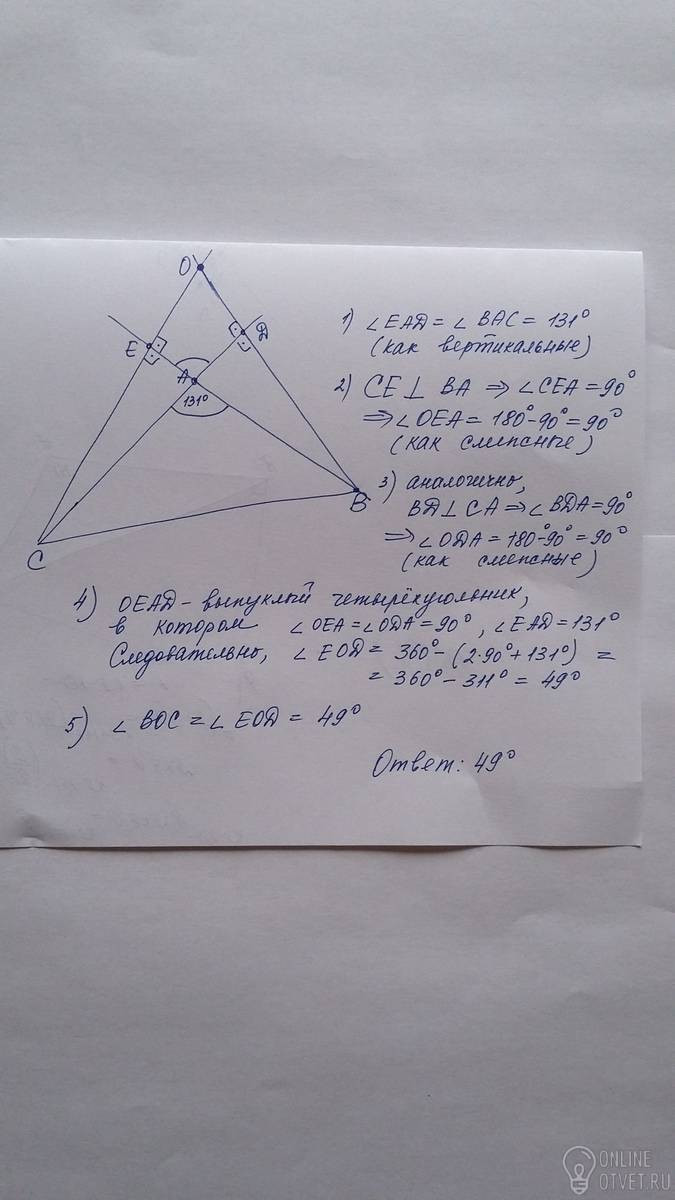 O
E
D
A
131°
B
C
1) ∠EAD = ∠BAC = 131°
(как вертикальные)
2) CE ⊥ BA ⇒ ∠CEA = 90°
⇒ ∠OEA = 180° - 90° = 90°
(как смежные)
3) аналогично,
BD ⊥ CA ⇒ ∠BDA = 90°
⇒ ∠ODA = 180° - 90° = 90°
(как смежные)
4) OEAD - выпуклый четырёхугольник,
в котором ∠OEA = ∠ODA = 90°, ∠EAD = 131°
Следовательно, ∠EOD = 360° - (2·90° + 131°) =
= 360° - 311° = 49°
5) ∠BOC = ∠EOD = 49°
Ответ: 49°
ONLINE
OTVET.RU